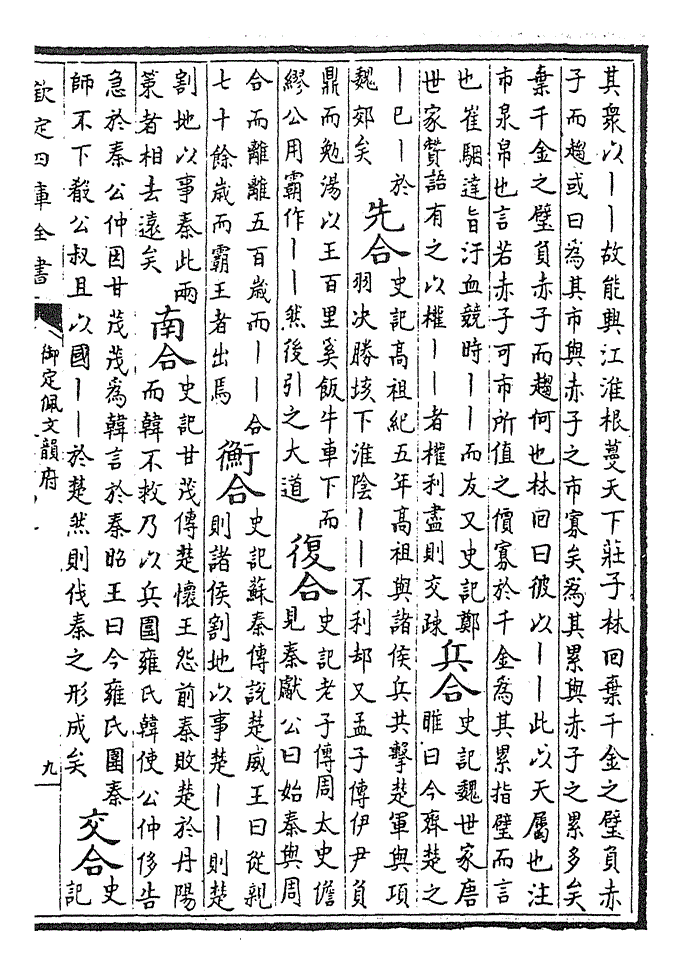 其衆以丨丨故能興江淮根蔓天下莊子林回棄千金之璧負赤
子而趨或曰為其市與赤子之市寡矣為其累與赤子之累多矣
棄千金之璧負赤子而趨何也林囘曰彼以丨丨此以天屬也注
市泉帛也言若赤子可市所值之價寡於千金為其累指璧而言
也崔駰達旨汙血競時丨丨而友又史記鄭
世家贊語有之以權丨丨者權利盡則交疎
兵合
史記魏世家唐
雎曰今齊楚之
丨已丨於
魏郊矣
先合
史記高祖紀五年高祖與諸侯兵共擊楚軍與項
羽决勝垓下淮陰丨丨不利却又孟子傳伊尹負
鼎而勉湯以王百里奚飯牛車下而
繆公用霸作丨丨然後引之大道
復合
史記老子傳周太史儋
見秦獻公曰始秦與周
合而離離五百歲而丨丨合
七十餘歲而霸王者出焉
衡合
史記蘇秦傳說楚威王曰從親
則諸侯割地以事楚丨丨則楚
割地以事秦此兩
策者相去遠矣
南合
史記甘茂傳楚懷王怨前秦敗楚於丹陽
而韓不救乃以兵圍雍氏韓使公仲侈告
急於秦公仲因甘茂茂為韓言於秦昭王曰今雍氏圍秦
師不下殽公叔且以國丨丨於楚然則伐秦之形成矣
交合
史
記
欽定四庫全書
御定佩文韻府
九